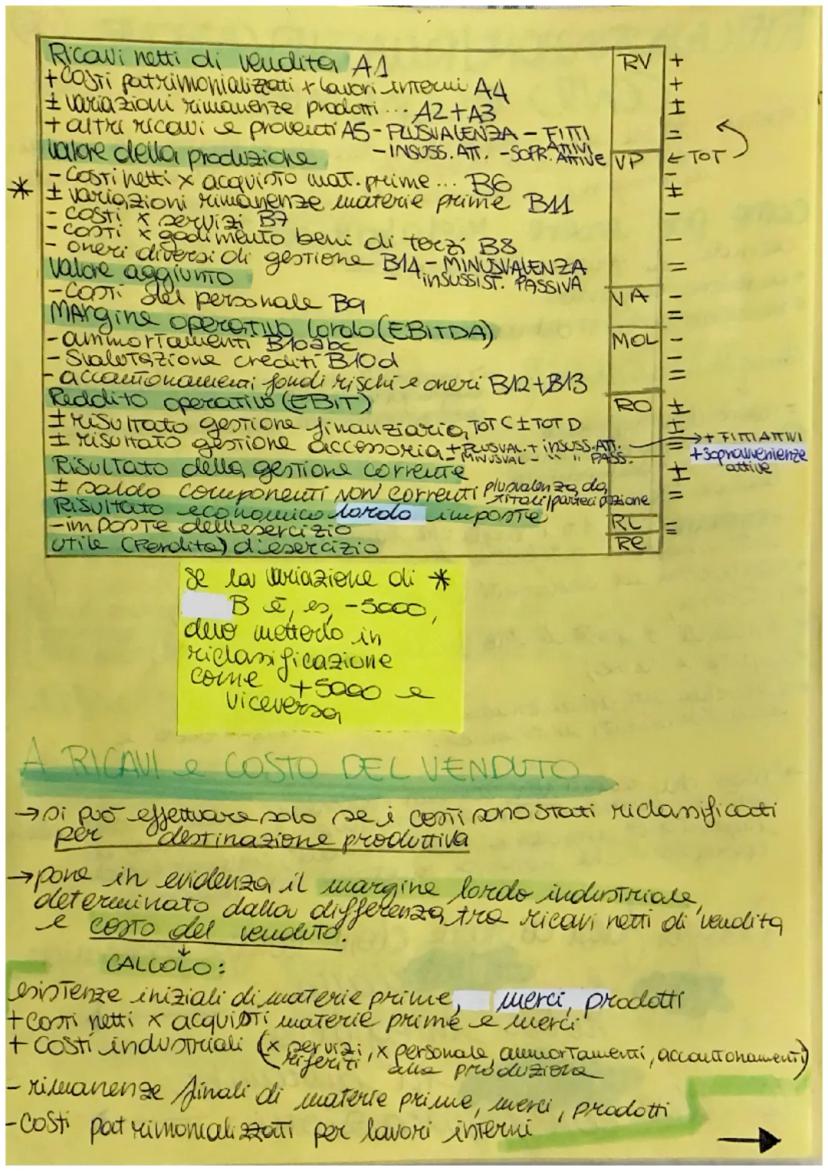 Ricavi netti di vendita A1 RV +
+ costi patrimonializzati x lavori interni A4 +
± variazioni rimanenze prodotti ... A2+A3 ±
+ altri ricavi e proventi A5 - PLUSVALENZA - FITTI ATTIVI =
- INSUSS. ATT. - SOPR. ATTIVE
Valore della produzione VP ← TOT
- costi netti x acquisto mat. prime ... B6 -
* ± variazioni rimanenze materie prime B11 ±
- costi x servizi B7 -
- costi x godimento beni di terzi B8 -
- oneri diversi di gestione B14 - MINUSVALENZA =
- INSUSSIST. PASSIVA
Valore aggiunto VA -
- costi del personale B9 =
Margine operativo lordo (EBITDA) MOL -
- ammortamenti B10abc -
- Svalutazione crediti B10d
- accantonamenti fondi rischi e oneri B12+B13 =
Reddito operativo (EBIT) RO ±
± risultato gestione finanziario, TOT C ± TOT D ±
± risultato gestione accessoria + PLUSVAL. + INSUSS. ATT. = → + FITTI ATTIVI
MINUSVAL - " " PASS. + sopravvenienze attive
Risultato della gestione corrente ±
± saldo componenti non correnti plusvalenza da titoli/partecipazione =
Risultato economico lordo imposte RL
- imposte dell'esercizio =
Utile (Perdita) d'esercizio Re
Se la variazione di *
B è, es, -5000,
devo metterlo in
riclassificazione
come +5000 e
viceversa
A RICAVI e COSTO DEL VENDUTO
→ si può effettuare solo se i costi sono stati riclassificati
per destinazione produttiva
→ pone in evidenza il margine lordo industriale,
determinato dalla differenza tra ricavi netti di vendita
e costo del venduto.
↓
CALCOLO:
esistenze iniziali di materie prime, merci, prodotti
+ costi netti x acquisti materie prime e merci
+ costi industriali (x servizi, x personale, ammortamenti, accantonamenti)
riferiti alla produzione
- rimanenze finali di materie prime, merci, prodotti
- costi patrimonializzati per lavori interni →